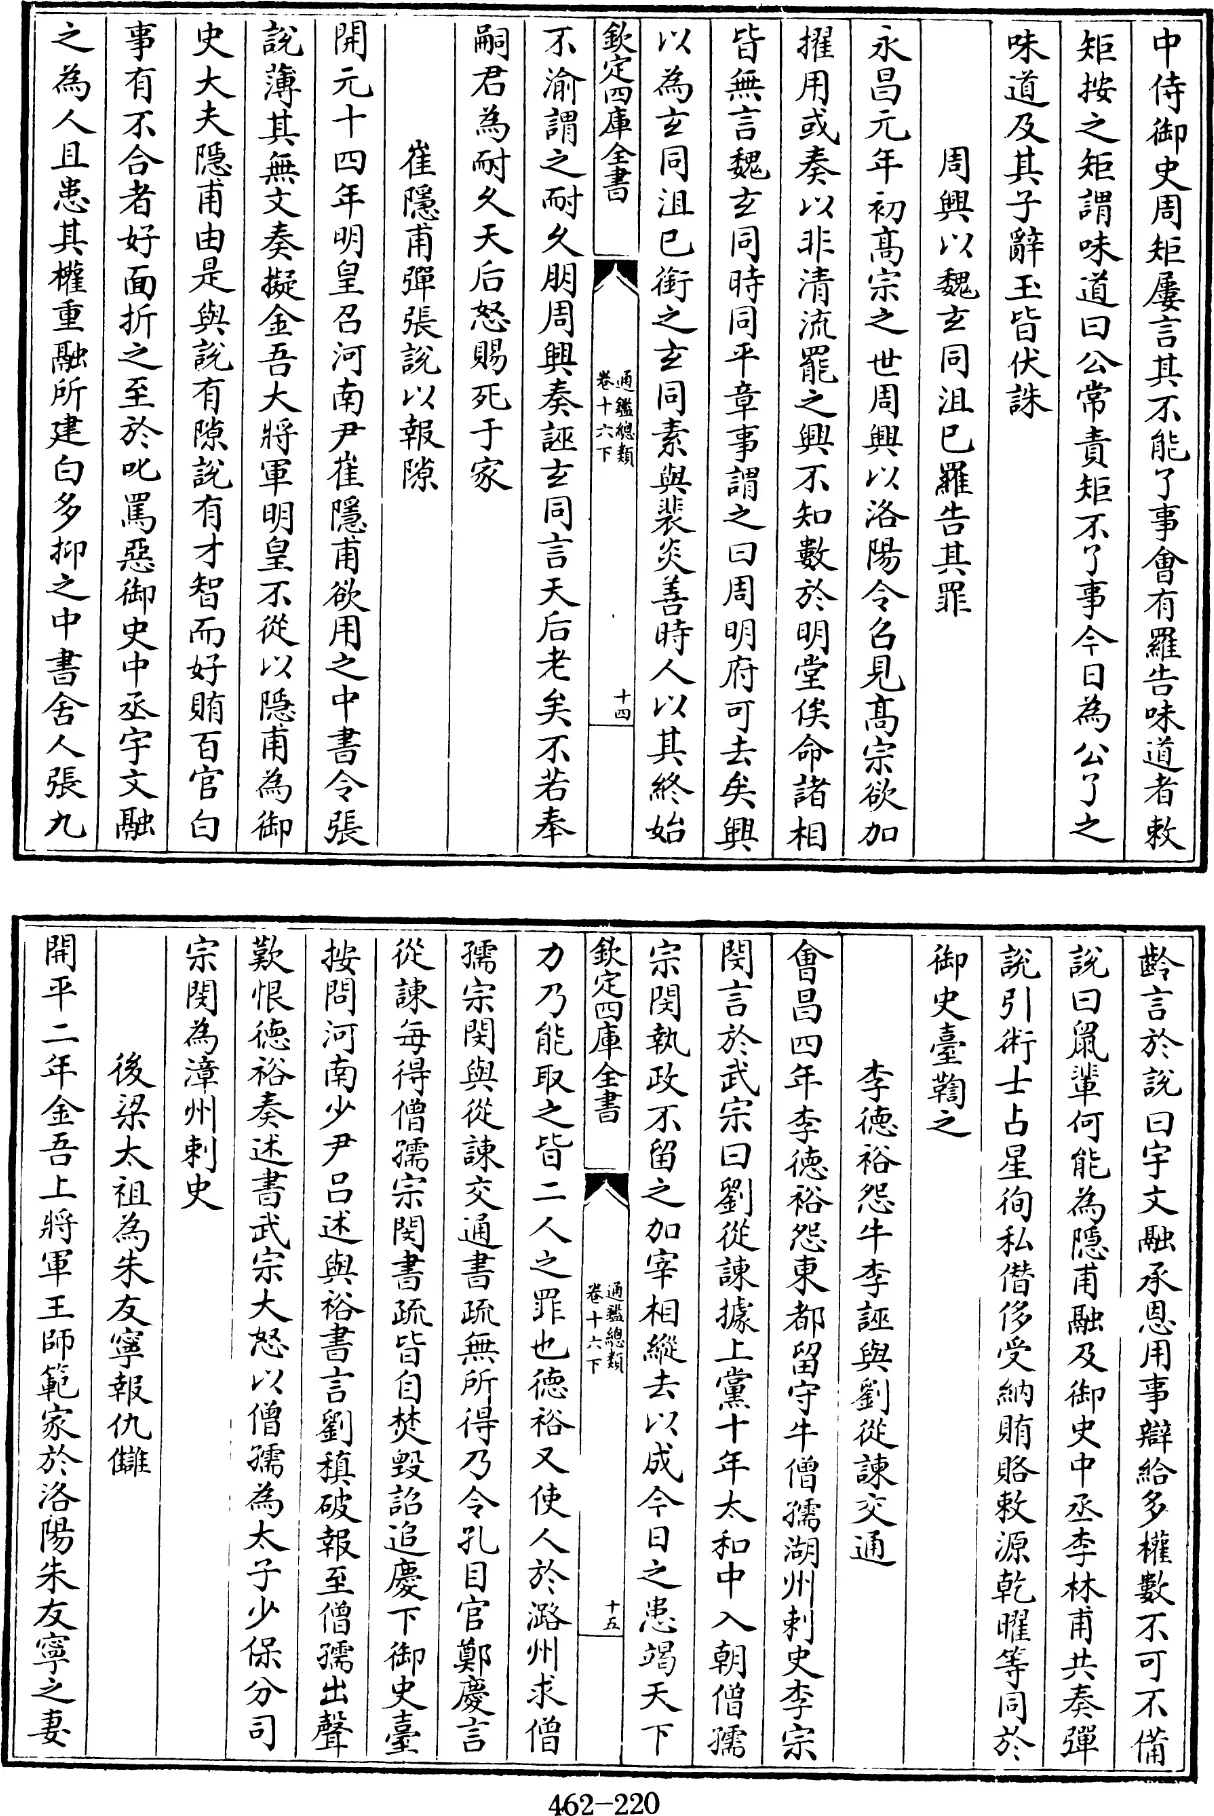 中侍御史周矩屢言其不能了事會有羅告味道者敕
矩按之矩謂味道曰公常責矩不了事今日為公了之
味道及其子辭玉皆伏誅
周興以魏玄同沮已羅告其罪
永昌元年初髙宗之世周興以洛陽令召見髙宗欲加
擢用或奏以非清流罷之興不知數於明堂俟命諸相
皆無言魏玄同時同平章事謂之曰周明府可去矣興
以為玄同沮已銜之玄同素與裴炎善時人以其終始
欽定四庫全書
通鑑總類
卷十六下
十四
不渝謂之耐久朋周興奏誣玄同言天后老矣不若奉
嗣君為耐久天后怒賜死于家
崔隱甫彈張說以報隙
開元十四年明皇召河南尹崔隱甫欲用之中書令張
說薄其無文奏擬金吾大將軍明皇不從以隱甫為御
史大夫隱甫由是與說有隙說有才智而好賄百官白
事有不合者好面折之至於叱罵惡御史中丞宇文融
之為人且患其權重融所建白多抑之中書舍人張九
齡言於說曰宇文融承恩用事辯給多權數不可不備
說曰鼠輩何能為隱甫融及御史中丞李林甫共奏彈
說引術士占星徇私僭侈受納賄賂敕源乾曜等同於
御史臺鞫之
李德裕怨牛李誣與劉從諫交通
會昌四年李德裕怨東都留守牛僧孺湖州刺史李宗
閔言於武宗曰劉從諫據上黨十年太和中入朝僧孺
宗閔執政不留之加宰相縱去以成今日之患竭天下
欽定四庫全書
通鑑總類
卷十六下
十五
力乃能取之皆二人之罪也德裕又使人於潞州求僧
孺宗閔與從諫交通書疏無所得乃令孔目官鄭慶言
從諫每得僧孺宗閔書疏皆自焚毀詔追慶下御史臺
按問河南少尹呂述與裕書言劉稹破報至僧孺出聲
歎恨德裕奏述書武宗大怒以僧孺為太子少保分司
宗閔為漳州刺史
後梁太祖為朱友寧報仇讎
開平二年金吾上將軍王師範家於洛陽朱友寧之妻
462-220